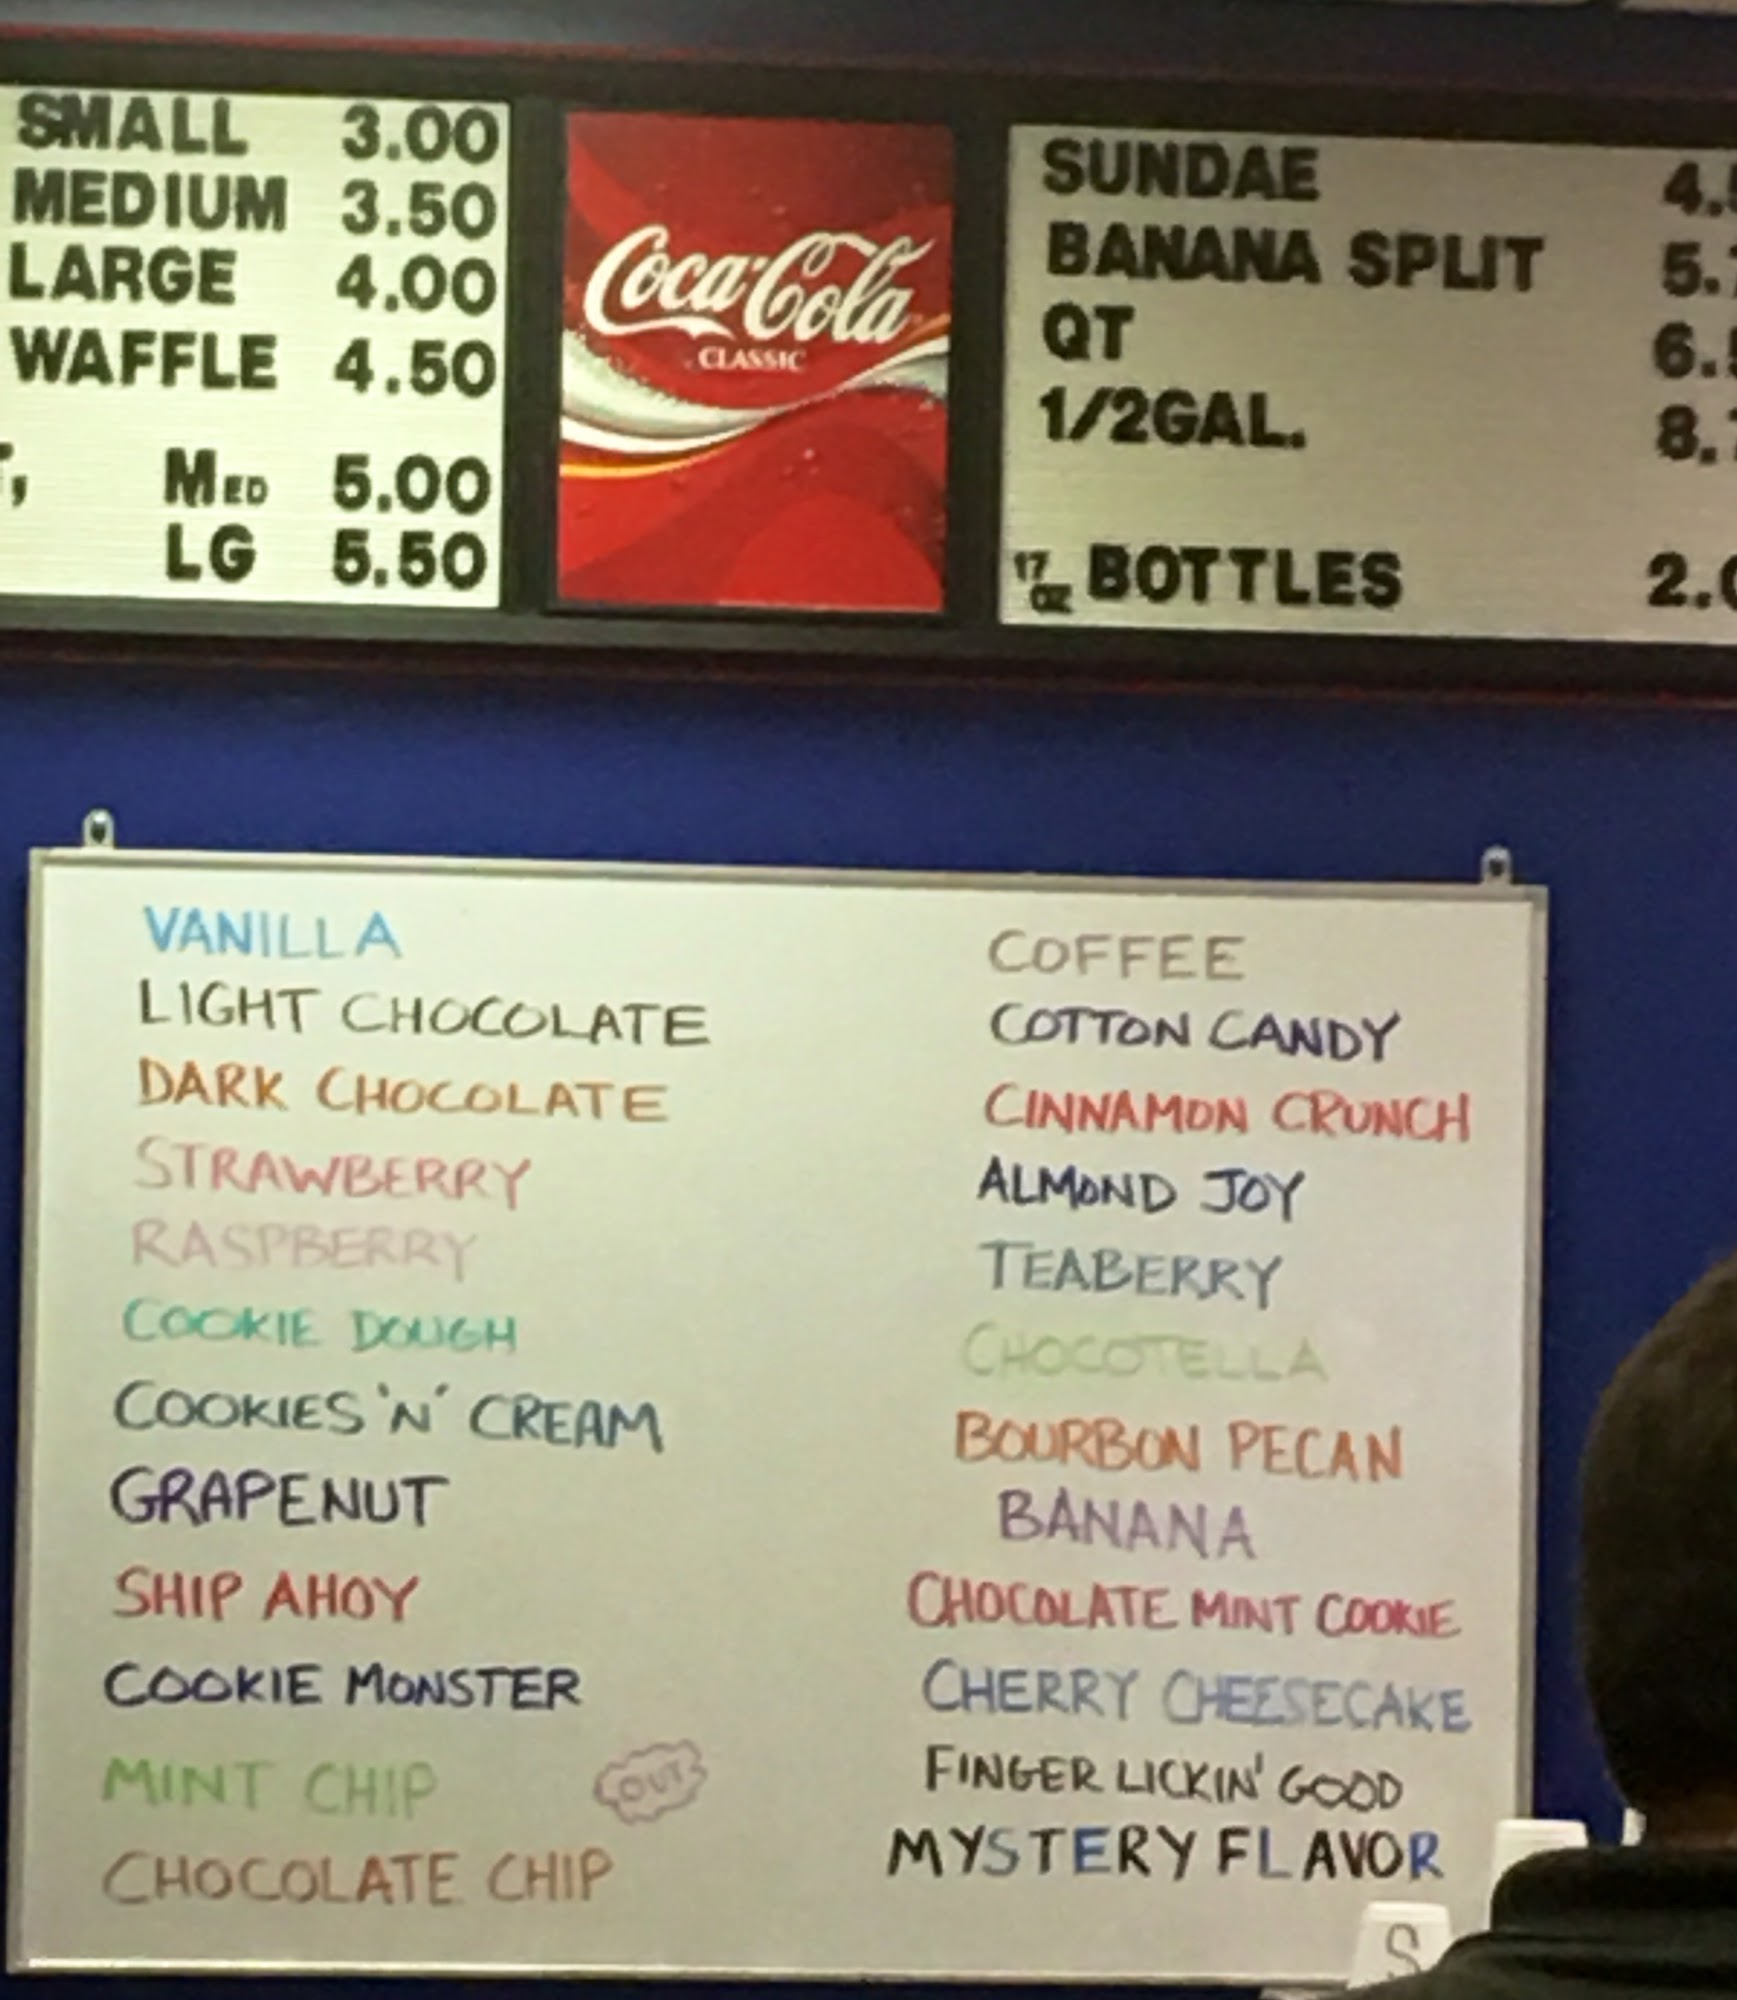 SMALL 3.00
MEDIUM 3.50
LARGE 4.00
WAFFLE 4.50
MED 5.00
LG 5.50
Coca-Cola
CLASSIC
SUNDAE
BANANA SPLIT
QT
1/2GAL.
17 OZ BOTTLES
VANILLA
LIGHT CHOCOLATE
DARK CHOCOLATE
STRAWBERRY
RASPBERRY
COOKIE DOUGH
COOKIES 'N' CREAM
GRAPENUT
SHIP AHOY
COOKIE MONSTER
MINT CHIP OUT
CHOCOLATE CHIP
COFFEE
COTTON CANDY
CINNAMON CRUNCH
ALMOND JOY
TEABERRY
CHOCOTELLA
BOURBON PECAN
BANANA
CHOCOLATE MINT COOKIE
CHERRY CHEESECAKE
FINGER LICKIN' GOOD
MYSTERY FLAVOR
S